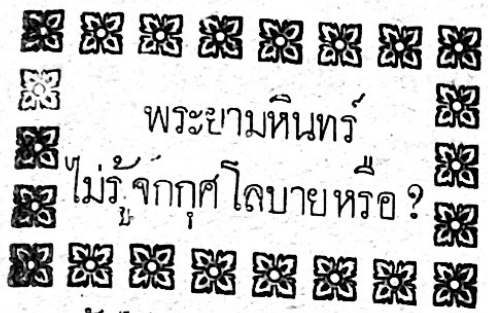 พระยามหินทร์
ไม่รู้จักกุศโลบายหรือ?